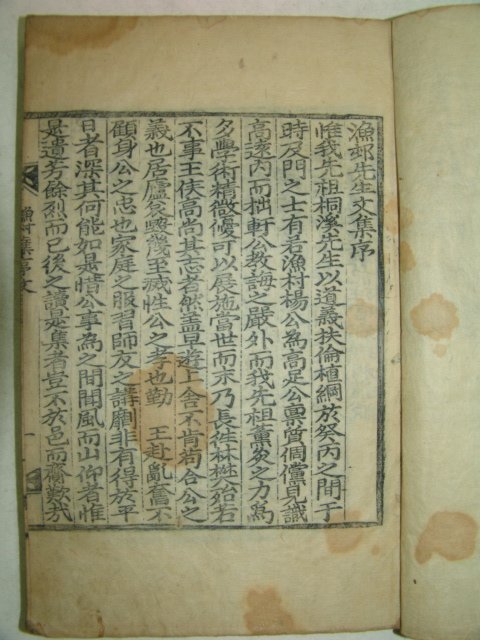 漁邨先生文集序
惟我先祖桐溪先生以道義扶倫植綱於癸丙之間于
時及門之士有若漁村楊公為高足公稟質倜儻見識
高遠內而拙軒公教誨之嚴外而我先祖薰炙之力為
多學術精微優可以展施當世而末乃長往林樊殆若
不事王侯高尚其志者然盖早遊上舍不肯苟合公之
義也居廬哀毀幾至滅性公之孝也勤 王赴亂奮不
顧身公之忠也家庭之服習師友之講劘非有得於平
日者深其何能如是惜公事為之間聞風而山仰者惟
是遺芳餘烈而已後之讀是集者豈不於邑而齎歎哉
漁村集序文 一